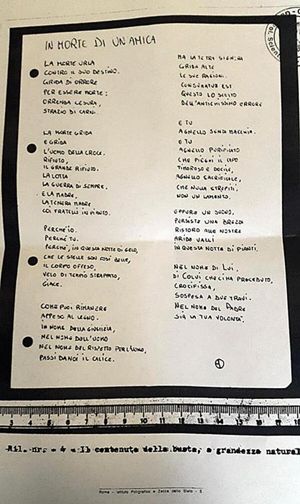 IN MORTE DI UN'AMICA
LA MORTE URLA
CONTRO IL SUO DESTINO.
GRIDA DI ORRORE
PER ESSERE MORTE:
ORRENDA CESURA,
STRAZIO DI CARNI.
LA MORTE GRIDA
E GRIDA
L'UOMO DELLA CROCE.
RIFIUTO,
IL GRANDE RIFIUTO.
LA LOTTA
LA GUERRA DI SEMPRE.
E LA MADRE,
LA TENERA MADRE
COI FRATELLI IN PIANTO.
PERCHÉ IO.
PERCHÉ TU.
PERCHÉ, IN QUESTA NOTTE DI GELO,
CHE LE STELLE SON COSÌ BELLE,
IL CORPO OFFESO,
VELO DI TEMPO STRAPPATO,
GIACE.
COME PUOI RIMANERE
APPESO AL LEGNO.
IN NOME DELLA GIUSTIZIA,
NEL NOME DELL'UOMO
NEL NOME DEL RISPETTO PER L'UOMO,
PASSI DA NOI IL CALICE.
MA LA TETRA SIGNORA
GRIDA ALTE
LE SUE RAGIONI.
CONSUMATUR EST
QUESTO LO SCELTO
DELL'ANTICHISSIMO ERRORE
E TU
AGNELLO SENZA MACCHIA.
E TU
AGNELLO PURIFICATO
CHE PIEGHI IL CAPO
TIMOROSO E DOCILE,
AGNELLO SACRIFICALE,
CHE NULLA STREPITI,
NON UN LAMENTO.
EPPURE UN SUONO,
PERSISTE UNA BREZZA
RISTORO ALLE NOSTRE
ARIDE VALLI
IN QUESTA NOTTE DI PIANTI.
NEL NOME DI LUI,
DI COLUI CHE CI HA PRECEDUTO,
CROCIFISSA,
SOSPESA A DUE TRAVI.
NEL NOME DEL PADRE
SIA LA TUA VOLONTÀ.
All. nr. 4 - Il contenuto della busta, a grandezza natural
Roma - Istituto Poligrafico e Zecca dello Stato - S